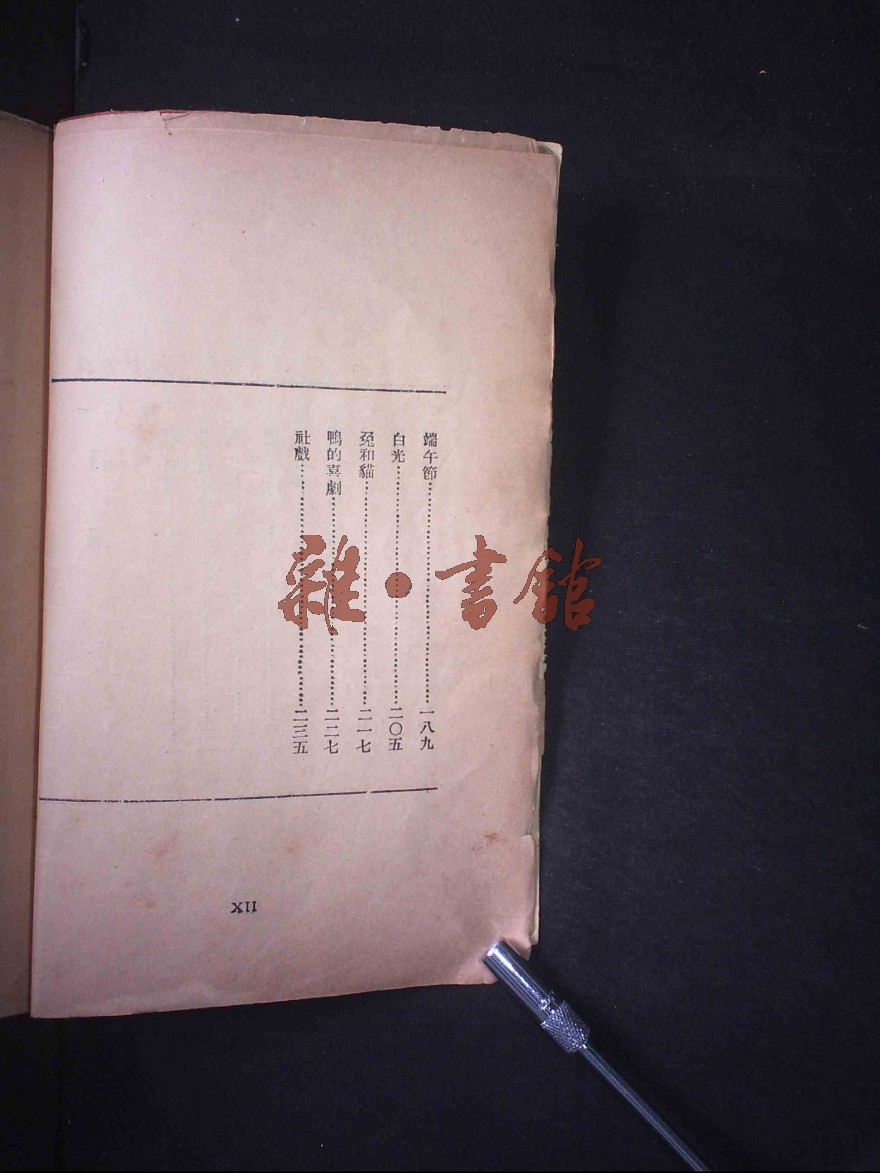 端午節……一八九
白光……二〇五
兔和貓……二一七
鴨的喜劇……二二七
社戲……二三五
XII
雜·書館